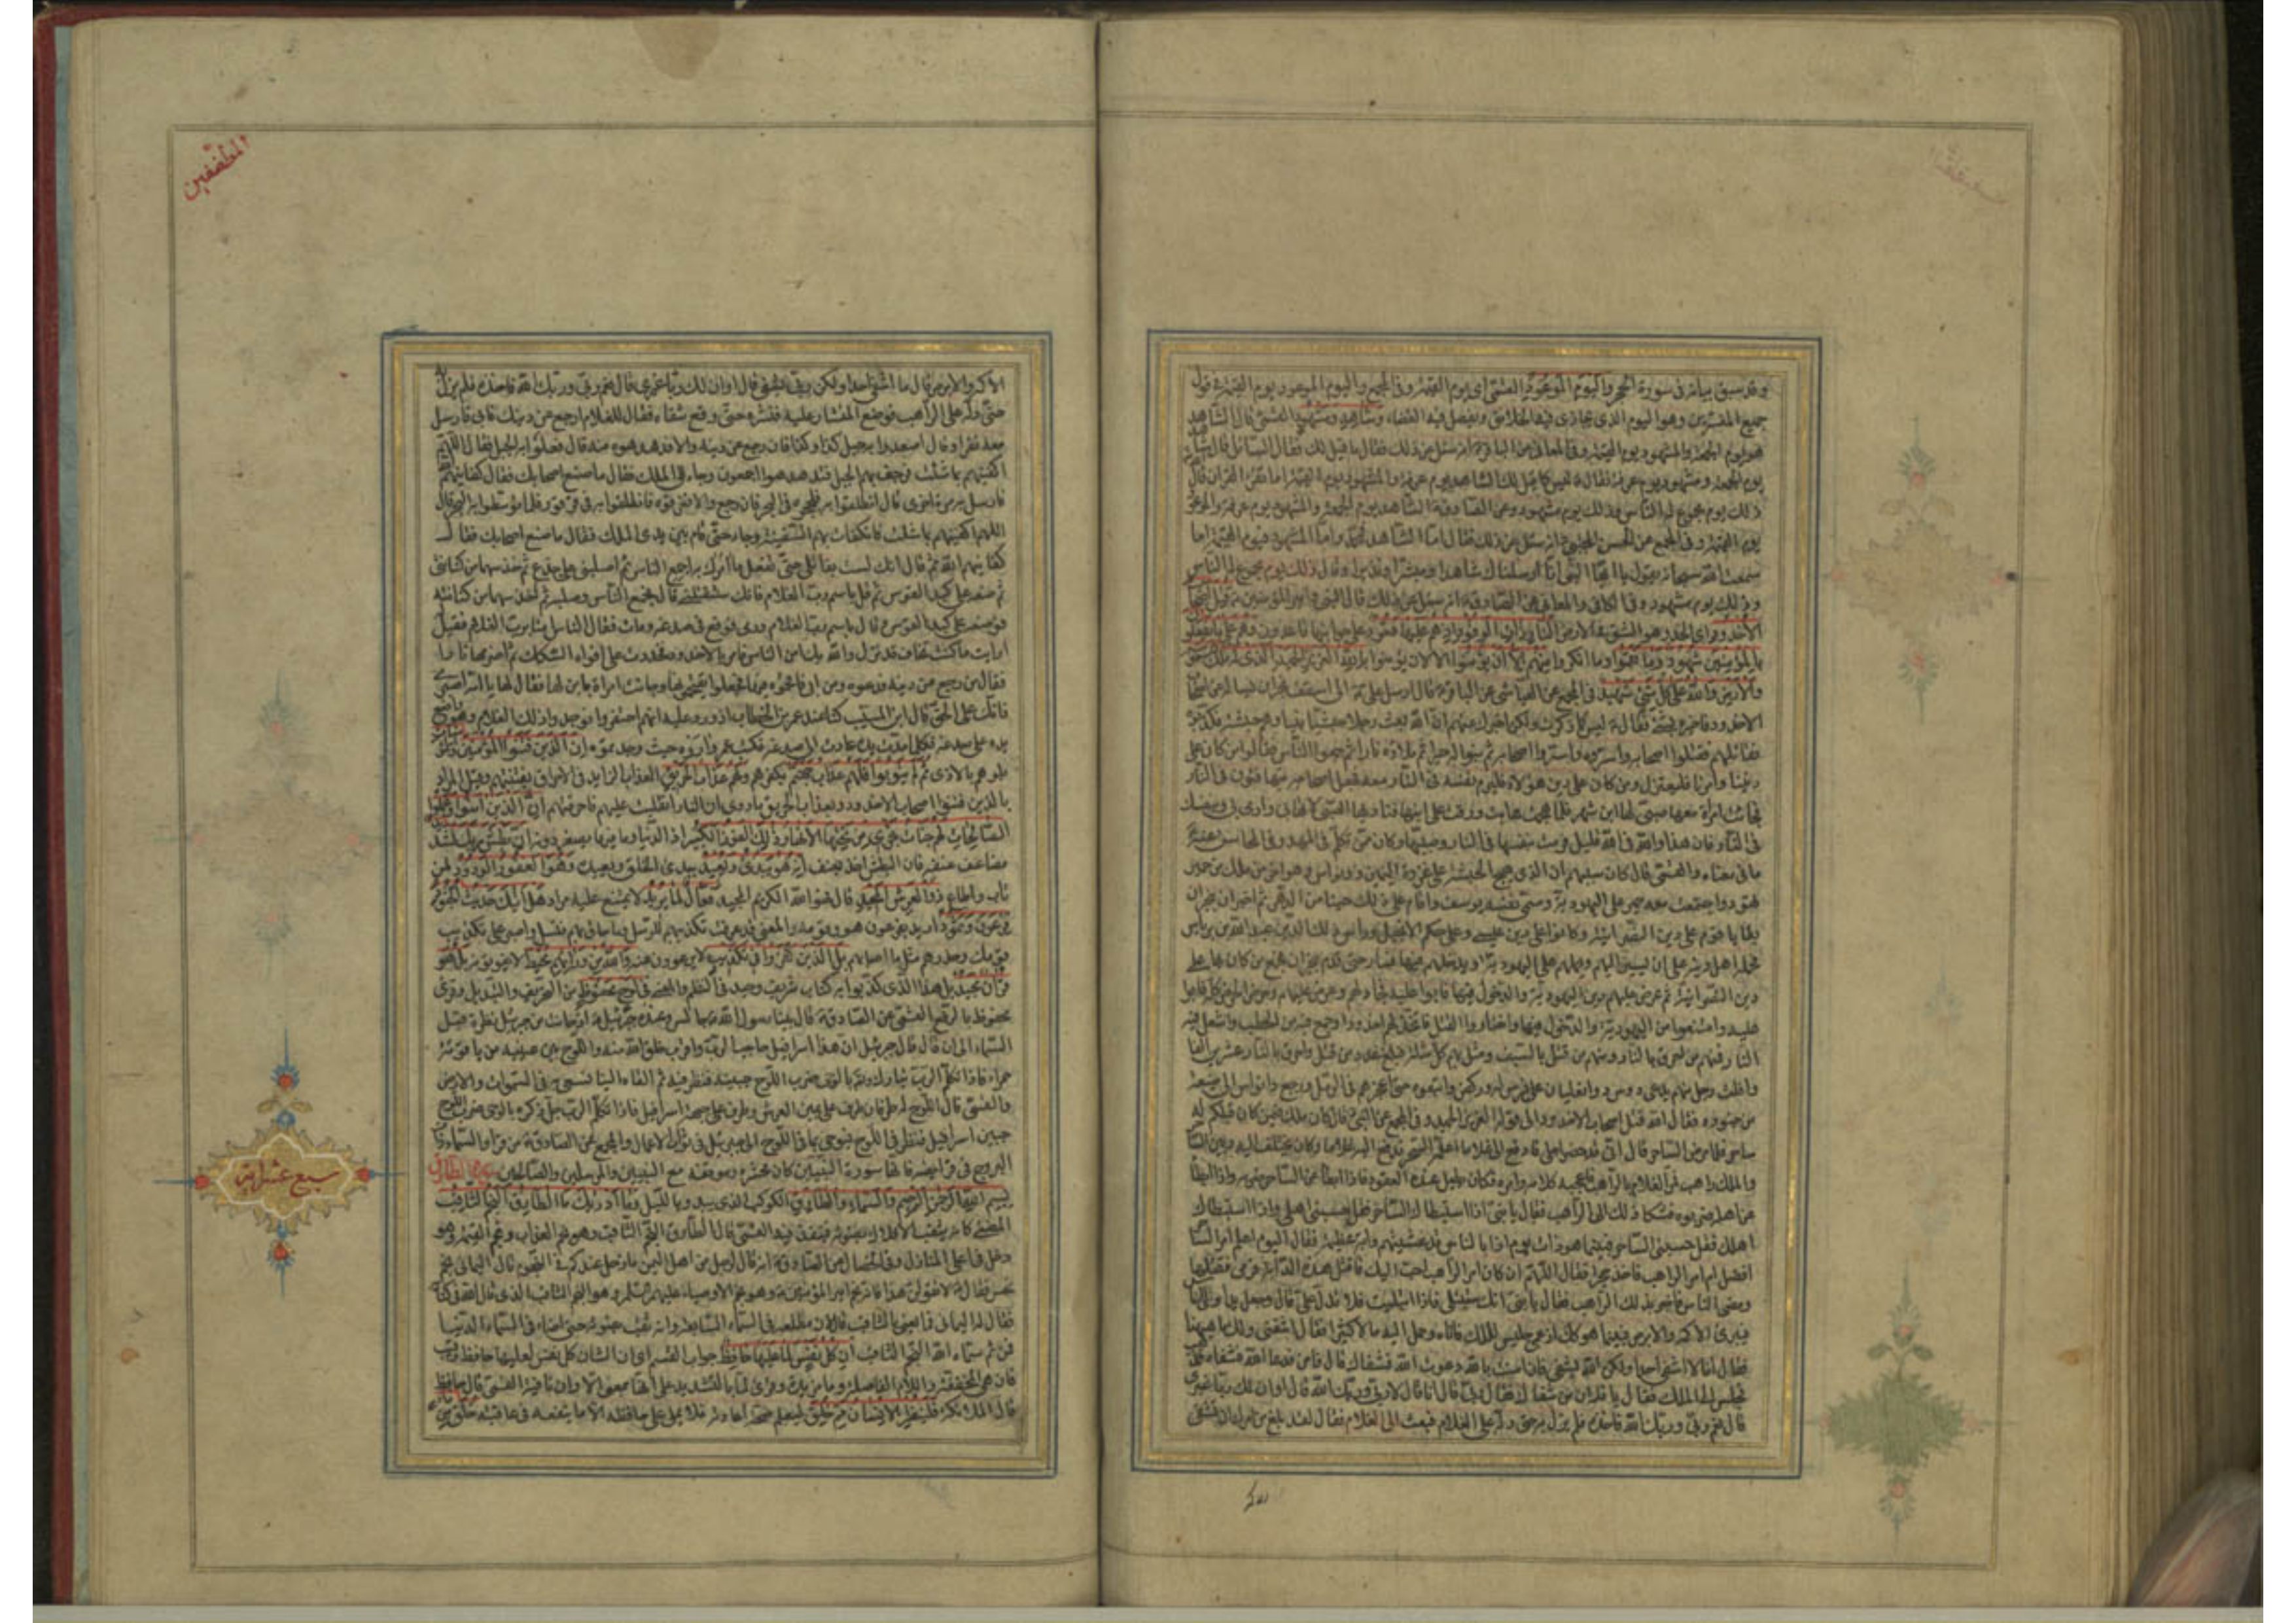 وقد سبق بيانه في سورة الحجر واليوم الموعود القمي اي يوم القيمة وفي المجمع واليوم الموعود يوم القيمة في قول
جميع المفسرين وهو اليوم الذي يجازى فيه الخلائق ويفصل فيه القضاء وشاهد ومشهود القمي قال الشاهد
يوم الجمعة والمشهود يوم القيمة وفي المعاني عن الباقر انه سئل عن ذلك فقال ما قيل لك فقال السائل قال الشاهد
يوم الجمعة ومشهود يوم عرفة فقال ليس كما قيل لك الشاهد يوم عرفة والمشهود يوم القيمة اما تقرء القران قال
ذلك يوم مجموع له الناس وذلك يوم مشهود وعن الصادق الشاهد يوم الجمعة والمشهود يوم عرفة والموعود
يوم القيمة وفي المجمع عن الحسن المجتبى انه سئل عن ذلك فقال اما الشاهد فمحمد واما المشهود فيوم القيمة اما
سمعت الله سبحانه يقول يا ايها النبي انا ارسلناك شاهدا ومبشرا ونذيرا وقال ذلك يوم مجموع له الناس
وذلك يوم مشهود وفي الكافي والمعاني عن الصادق انه سئل عن ذلك فقال النبي وامير المؤمنين قتل اصحاب
الاخدود اي الخد وهو الشق في الارض النار ذات الوقود اذ هم عليها قعود على جوانبها قاعدون وهم على ما يفعلون
بالمؤمنين شهود وما نقموا وما انكروا منهم الا ان يؤمنوا الا لان يؤمنوا بالله العزيز الحميد الذي له ملك السموات
والارض والله على كل شيء شهيد في المجمع عن العياشي عن الباقر قال ارسل علي الى اسقف نجران يسأله عن اصحاب
الاخدود فاخبره بشيء فقال ليس كما ذكرت ولكن ساخبرك عنهم ان الله بعث رجلا حبشيا نبيا وهم حبشة فكذبوه
فقاتلهم فقتلوا اصحابه واسروه واسروا اصحابه ثم بنوا له حيرا ثم ملاؤه نارا ثم جمعوا الناس فقالوا من كان على
ديننا وامرنا فليعتزل ومن كان على دين هؤلاء فليرم نفسه في النار معه فجعل اصحابه يتهافتون في النار
فجاءت امرأة معها صبي لها ابن شهر فلما هجمت هابت ورقت على ابنها فناداها الصبي لا تهابي وارمي بي وبنفسك
في النار فان هذا والله في الله قليل فرمت بنفسها في النار وصبيها وكان ممن تكلم في المهد وفي المحاسن عنه
ما في معناه والقمي قال كان سببهم ان الذي هيج الحبشة على غزوة اليمن ذو نواس وهو اخر من ملك من حمير
تهود واجتمعت معه حمير على اليهودية وسمى نفسه يوسف واقام على ذلك حينا من الدهر ثم اخبر ان بنجران
بقايا قوم على دين النصرانية وكانوا على دين عيسى وعلى حكم الانجيل ورأس ذلك الدين عبد الله بن بريامن
فحمله اهل دينه على ان يسير اليهم ويحملهم على اليهودية ويدخلهم فيها فسار حتى قدم نجران فجمع من كان بها على
دين النصرانية ثم عرض عليهم دين اليهودية والدخول فيها فابوا عليه فجادلهم وعرض عليهم وحرص الحرص كله فابوا
عليه وامتنعوا من اليهودية والدخول فيها واختاروا القتل فاتخذ لهم اخدودا وجمع فيه من الحطب واشعل فيه
النار فمنهم من احرق بالنار ومنهم من قتل بالسيف ومثل بهم كل مثلة فبلغ عدد من قتل واحرق بالنار عشرين الفا
وافلت رجل منهم يدعى دوس ذو ثعلبان على فرس له وركض واتبعوه حتى اعجزهم في الرمل ورجع ذو نواس الى ضيعة
من جنوده فقال الله قتل اصحاب الاخدود الى قوله العزيز الحميد وفي المجمع عن النبي قال كان ملك فيمن كان قبلكم له
ساحر فلما مرض الساحر قال اني قد حضر اجلي فادفع الي غلاما اعلمه السحر فدفع اليه غلاما وكان يختلف اليه وبين الساحر
والملك راهب فمر الغلام بالراهب فاعجبه كلامه وامره فكان يطيل عنده القعود فاذا ابطأ عن الساحر ضربه واذا ابطأ
عن اهله ضربوه فشكا ذلك الى الراهب فقال يا بني اذا استبطأك الساحر فقل حبسني اهلي واذا استبطأك
اهلك فقل حبسني الساحر فبينما هو ذات يوم اذا بالناس قد غشيتهم دابة عظيمة فقال اليوم اعلم امر الساحر
افضل ام امر الراهب فاخذ حجرا فقال اللهم ان كان امر الراهب احب اليك فاقتل هذه الدابة فرمى فقتلها
ومضى الناس فاخبر بذلك الراهب فقال يا بني انك ستبتلى فاذا ابتليت فلا تدل علي قال وجعل يداوي الناس
فيبرئ الاكمه والابرص فبينما هو كذلك اذ عمي جليس للملك فاتاه وحمل اليه مالا كثيرا فقال اشفني ولك ما هيهنا
فقال انا لا اشفي احدا ولكن الله يشفي فان امنت بالله دعوت الله فشفاك قال فامن فدعا الله فشفاه فجلس
مجلس الى الملك فقال يا فلان من شفاك فقال ربي قال انا قال لا ربي وربك الله قال او ان لك ربا غيري
قال نعم ربي وربك الله فاخذه فلم يزل به حتى دله على الغلام فبعث الى الغلام فقال لقد بلغ من امرك ان تشفي
المطففين
الاكمه والابرص قال ما اشفي احدا ولكن ربي يشفي قال او ان لك ربا غيري قال نعم ربي وربك الله فاخذه فلم يزل
حتى دله على الراهب فوضع المنشار عليه فنشره حتى وقع شقاه فقال للغلام ارجع عن دينك فابى فارسل
معه نفرا وقال اصعدوا به جبل كذا وكذا فان رجع عن دينه والا فدهدهوه منه قال فعلوا به الجبل فقال اللهم
اكفنيهم بما شئت فرجف بهم الجبل فتدهدهوا اجمعون وجاء الى الملك فقال ما صنع اصحابك فقال كفانيهم الله
فارسل به مرة اخرى قال انطلقوا به فلججوه في البحر فان رجع والا فغرقوه فانطلقوا به في قرقور فلما توسطوا به البحر قال
اللهم اكفنيهم بما شئت فانكفأت بهم السفينة وجاء حتى قام بين يدي الملك فقال ما صنع اصحابك فقال
كفانيهم الله ثم قال انك لست بقاتلي حتى تفعل ما آمرك به اجمع الناس ثم اصلبني على جذع ثم خذ سهما من كنانتي
ثم ضعه على كبد القوس ثم قل باسم رب الغلام فانك ستقتلني قال فجمع الناس وصلبه ثم اخذ سهما من كنانته
فوضعه على كبد القوس وقال باسم رب الغلام ورمى فوقع في صدغه ومات فقال الناس امنا برب الغلام فقيل
ارايت ما كنت تخاف قد نزل والله بك امن الناس فامر بالاخدود فخددت على افواه السكك ثم اضرمها نارا
فقال من رجع عن دينه فدعوه ومن ابى فاقحموه فيها فجعلوا يقتحمونها وجاءت امرأة بابن لها فقال لها يا امه اصبري
فانك على الحق قال ابن المسيب كنا عند عمر بن الخطاب اذ ورد عليه انهم احتفروا فوجدوا ذلك الغلام وهو واضع
يده على صدغه فكلما مدت يده عادت الى صدغه فكتب عمر واروه حيث وجدتموه ان الذين فتنوا المؤمنين والمؤمنات
بلوهم بالاذى ثم لم يتوبوا فلهم عذاب جهنم بكفرهم ولهم عذاب الحريق العذاب الزايد في الاحراق بفتنتهم وقيل المراد
بالذين فتنوا اصحاب الاخدود وبعذاب الحريق ما روي ان النار انقلبت عليهم فاحرقتهم ان الذين امنوا وعملوا
الصالحات لهم جنات تجري من تحتها الانهار ذلك الفوز الكبير اذ الدنيا وما فيها يصغر دونه ان بطش ربك لشديد
مضاعف عنفه فان البطش اخذ بعنف انه هو يبدئ ويعيد يبدئ الخلق ويعيده وهو الغفور الودود لمن
تاب واطاع ذو العرش المجيد قال هو الله الكريم المجيد فعال لما يريد لا يمتنع عليه مراد هل اتيك حديث الجنود
فرعون وثمود اريد بفرعون هو وقومه والمعنى قد عرفت تكذيبهم للرسل وما حاق بهم فتسل واصبر على تكذيب
قومك وحذرهم مثل ما اصابهم بل الذين كفروا في تكذيب لا يرعوون عنه والله من ورائهم محيط لا يفوتونه بل هو
قران مجيد بل هذا الذي كذبوا به كتاب شريف وحيد في النظم والمعنى في لوح محفوظ من التحريف والتبديل وقرئ
محفوظ بالرفع القمي عن الصادق قال بينا رسول الله جالس وعنده جبرئيل اذ حانت من جبرئيل نظرة قبل
السماء الى ان قال قال جبرئيل ان هذا اسرافيل حاجب الرب واقرب خلق الله منه واللوح بين عينيه من ياقوتة
حمراء فاذا تكلم الرب تبارك وتعالى بالوحي ضرب اللوح جبينه فنظر فيه ثم القاه الينا نسعى به في السموات والارض
والقمي قال اللوح له طرفان طرف على يمين العرش وطرف على جبهة اسرافيل فاذا تكلم الرب جل ذكره بالوحي ضرب اللوح
جبين اسرافيل فنظر في اللوح فيوحي بما في اللوح الى جبرئيل في ثواب الاعمال والمجمع عن الصادق من قرأ والسماء ذات
البروج في فرايضه فانها سورة النبيين كان محشره وموقفه مع النبيين والمرسلين والصالحين سورة الطارق
بسم الله الرحمن الرحيم والسماء والطارق الكوكب الذي يبدو بالليل وما ادريك ما الطارق النجم الثاقب
المضيء كانه يثقب الافلاك بضوئه فينفذ فيه القمي قال الطارق النجم الثاقب وهو نجم العذاب ونجم القيمة وهو
زحل في اعلى المنازل وفي الخصال عن الصادق انه قال لرجل من اهل اليمن ما زحل عندكم في النجوم قال اليماني نجم
نحس فقال لا تقولن هذا فانه نجم امير المؤمنين وهو نجم الاوصياء عليهم السلم وهو النجم الثاقب الذي قال الله في كتابه
فقال له اليماني فما يعني بالثاقب قال ان مطلعه في السماء السابعة وانه ثقب بضوئه حتى اضاء في السماء الدنيا
فمن ثم سماه الله النجم الثاقب ان كل نفس لما عليها حافظ جواب القسم اي ان الشان كل نفس لعليها حافظ رقيب
فان هي المخففة واللام الفاصلة وما مزيدة وقرئ لما بالتشديد على انها بمعنى الا وان نافية القمي قال حافظ
قال الملائكة فلينظر الانسان مم خلق ليعلم صحة اعادته فلا يملي على حافظه الا ما ينفعه في عاقبته خلق من
سبع عشر آية